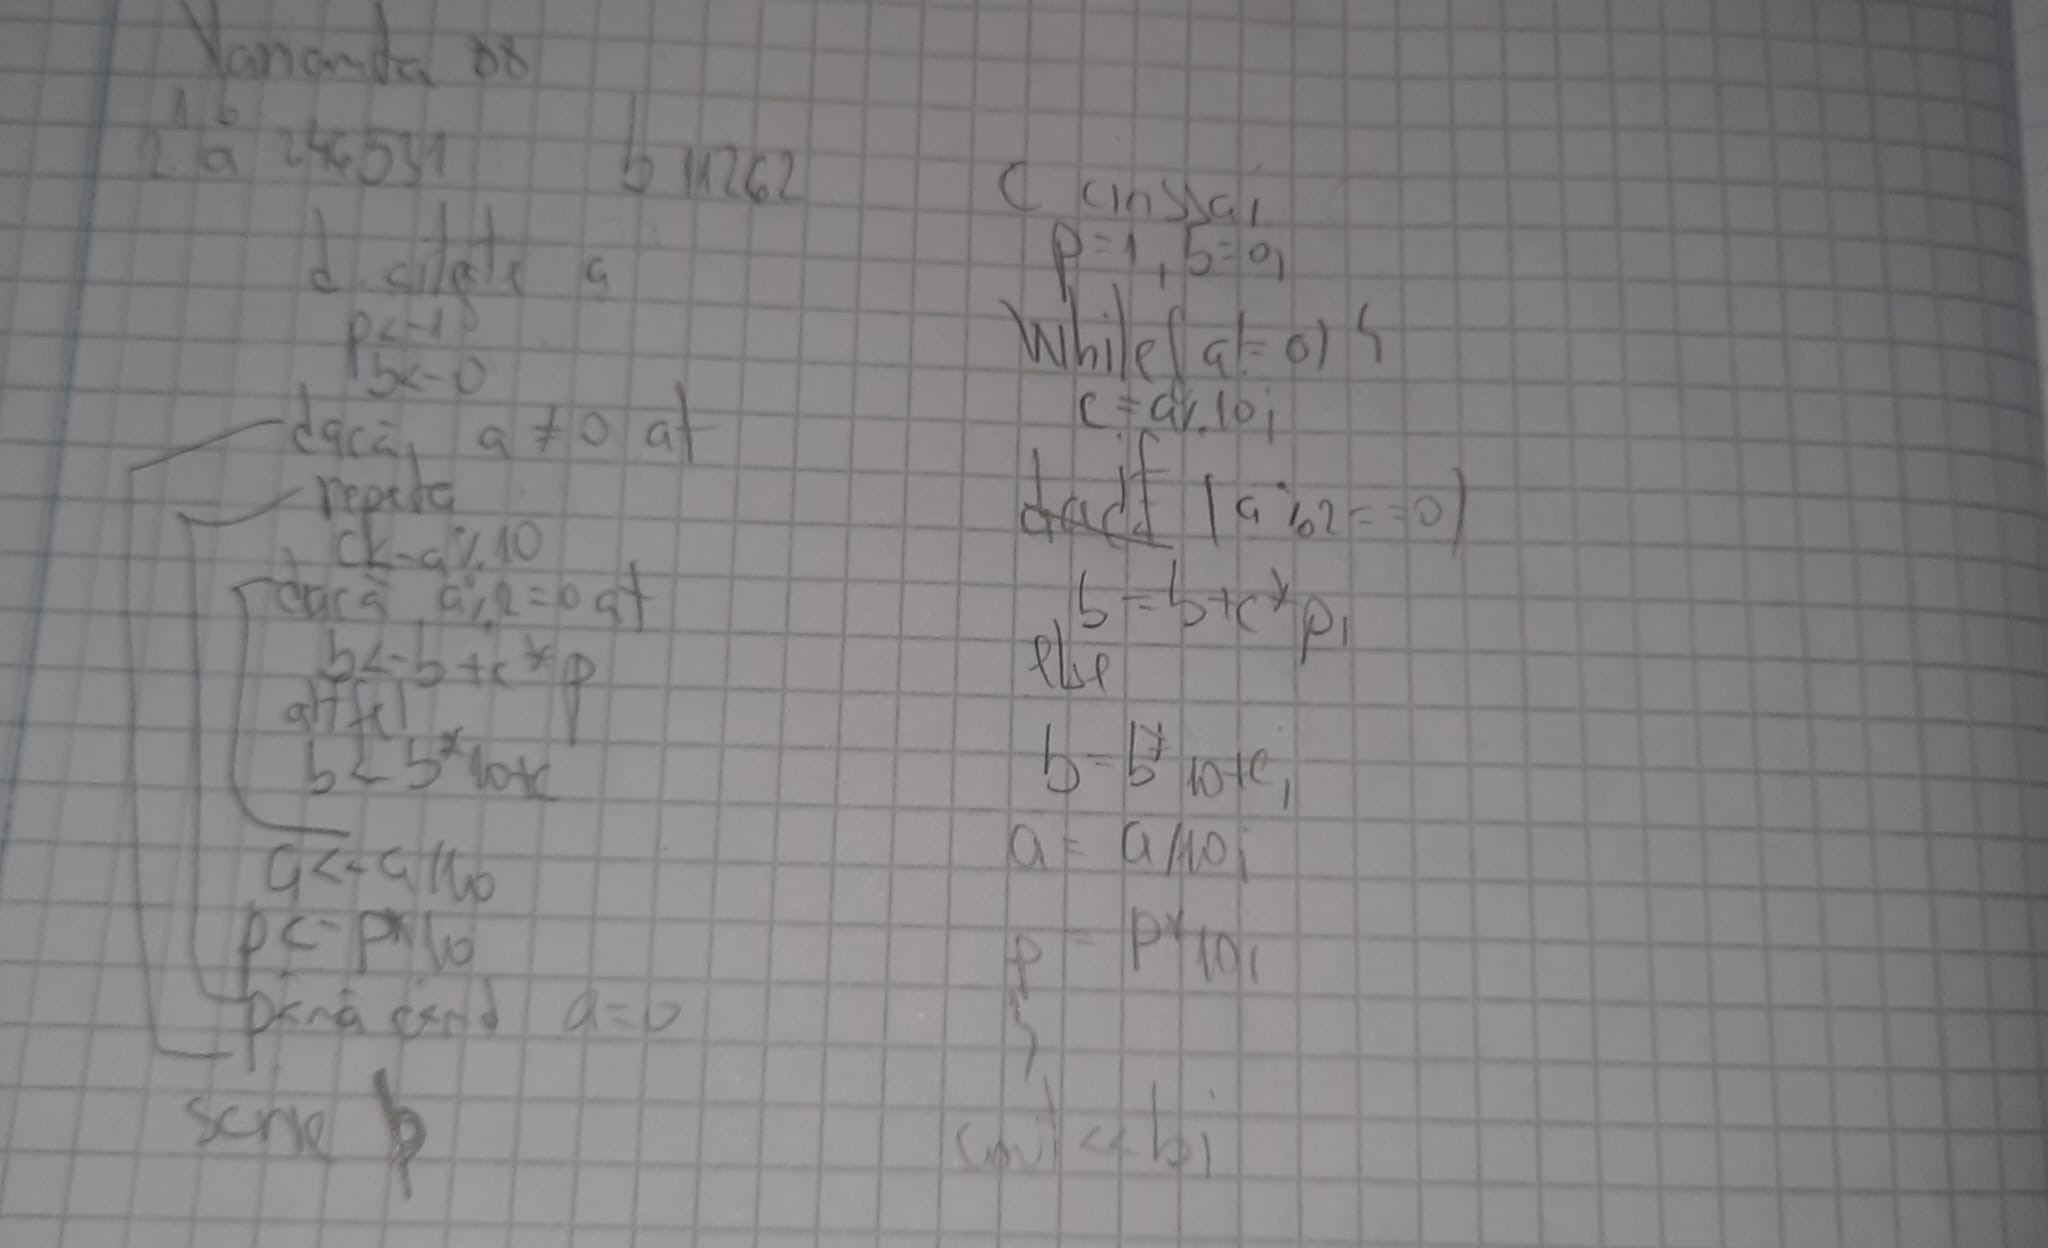 Varianta 08
1 b
2 a 246531 b 11262
d citește a
p<-1
b<-0
dacă a≠0 at
repeta
c<-a%10
dacă a%2=0 at
b<-b+c*p
altfel
b<-b*10+c
a<-a/10
p<-p*10
până când a=0
scrie b
c cin>>a;
p=1, b=0;
While(a!=0){
c=a%10;
if (a%2==0)
b=b+c*p;
else
b=b*10+c;
a=a/10;
p=p*10;
}
cout<<b;